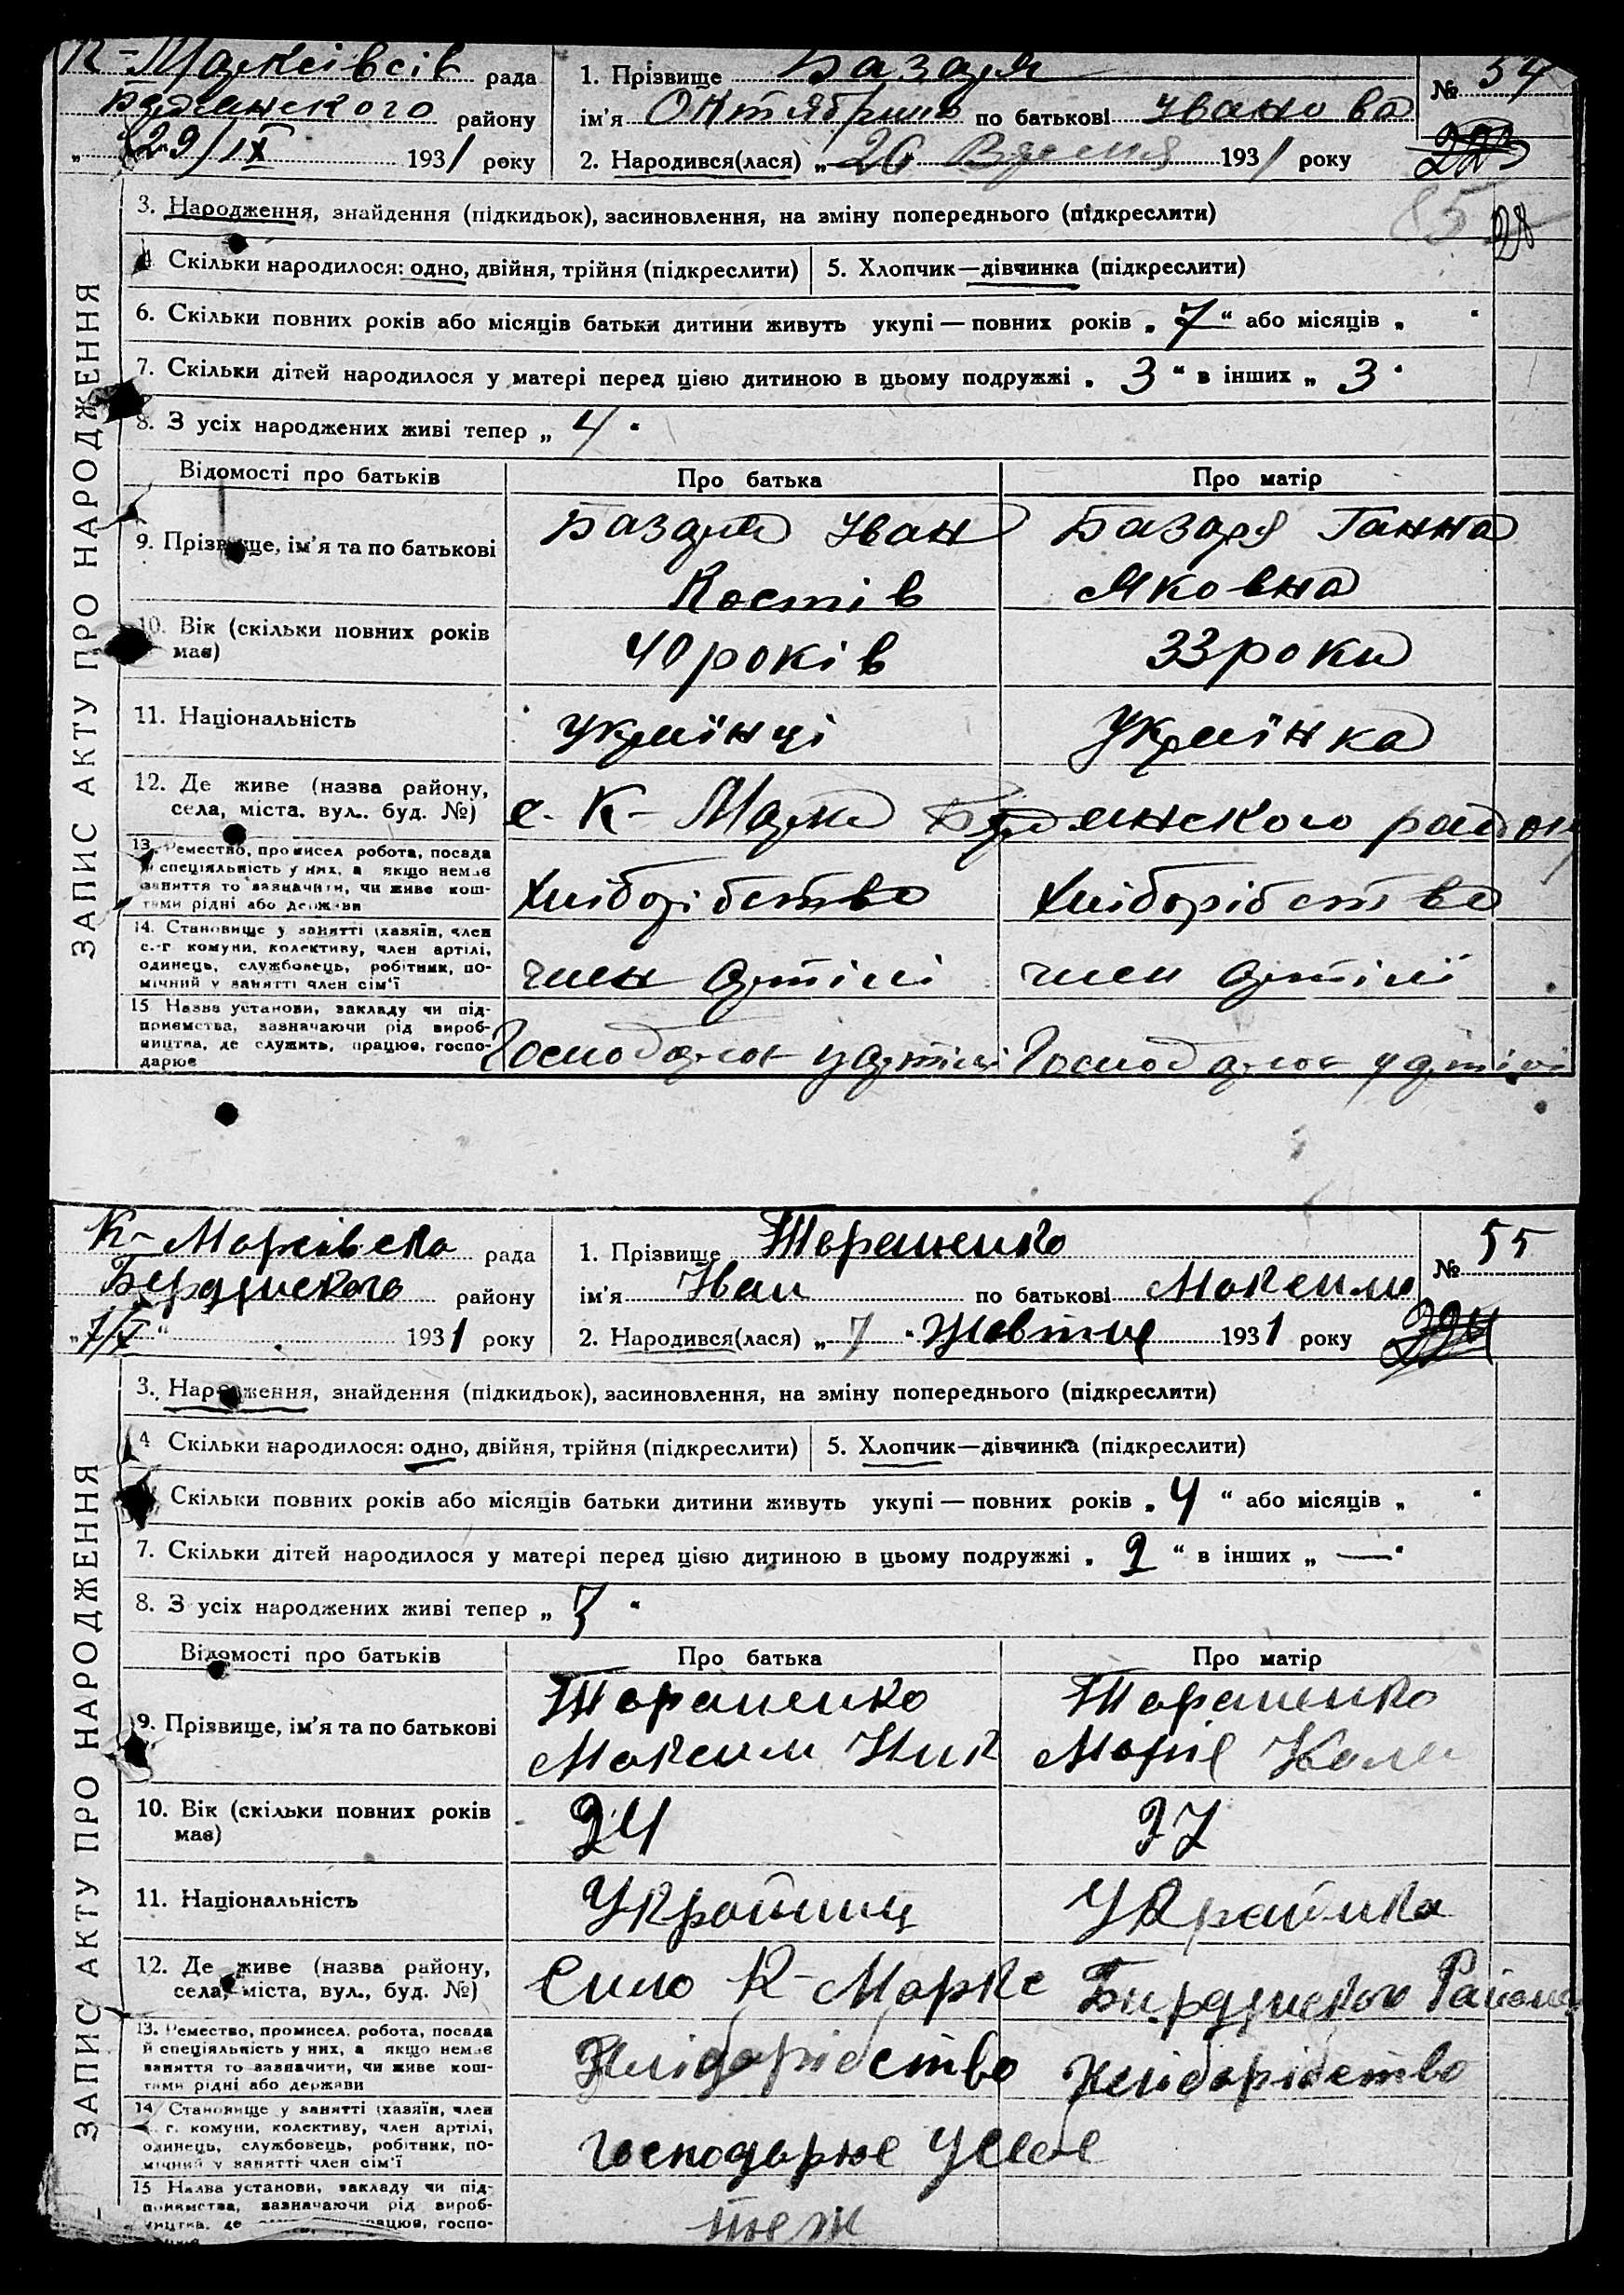 К-Марксівсів рада
району
29/IX 1931 року
1. Прізвище Базаря
ім'я Октябрина по батькові Іванова
2. Народився(лася) „ 26 Вресня 1931 року
№ 54
223
85
28
ЗАПИС АКТУ ПРО НАРОДЖЕННЯ
3. Народження, знайдення (підкидьок), засиновлення, на зміну попереднього (підкреслити)
4. Скільки народилося: одно, двійня, трійня (підкреслити) 5. Хлопчик—дівчинка (підкреслити)
6. Скільки повних років або місяців батьки дитини живуть укупі — повних років „ 7 “ або місяців „ “
7. Скільки дітей народилося у матері перед цією дитиною в цьому подружжі „ 3 “ в інших „ 3 “
8. З усіх народжених живі тепер „ 4 “
Відомості про батьків Про батька Про матір
9. Прізвище, ім'я та по батькові
Базаря Іван
Костів
Базаря Ганна
Яковна
10. Вік (скільки повних років має) 40 років 33 роки
11. Національність українці Українка
12. Де живе (назва району,
села, міста. вул.. буд. №) с. К- Маркса Бердянського району
13. Ремество, промисел робота, посада
й спеціяльність у них, а якщо немає
заняття то зазначити, чи живе кош-
тами рідні або держави
Хліборібство Хліборібство
14. Становище у занятті (хазяїн, член
с.-г комуни, колективу, член артілі,
одинець, службовець, робітник, по-
мічний у занятті член сім'ї
член артілі член артілі
15 Назва установи, закладу чи під-
приємства, зазначаючи рід вироб-
ництва, де служить, працює, госпо-
дарює
Господарює у артілі Господарює у артілі
К- Марксівска рада
району
7/X 1931 року
1. Прізвище Тараненко
ім'я Іван по батькові Максим
2. Народився(лася) „ 7 “ Жовтня 1931 року
№ 55
224
ЗАПИС АКТУ ПРО НАРОДЖЕННЯ
3. Народження, знайдення (підкидьок), засиновлення, на зміну попереднього (підкреслити)
4 Скільки народилося: одно, двійня, трійня (підкреслити) 5. Хлопчик—дівчинка (підкреслити)
Скільки повних років або місяців батьки дитини живуть укупі — повних років „ 4 “ або місяців „ “
7. Скільки дітей народилося у матері перед цією дитиною в цьому подружжі „ 2 “ в інших „ — “
8. З усіх народжених живі тепер „ 3 “
Відомості про батьків Про батька Про матір
9. Прізвище, ім'я та по батькові
Тараненко
Максим Ник
Тараненко
Марія
10. Вік (скільки повних років має) 24 27
11. Національність Українець Українка
12. Де живе (назва району,
села, міста, вул., буд. №) Село К- Маркс Району
13. Ремество, промисел. робота, посада
й спеціяльність у них, а якщо немає
заняття то зазначити, чи живе кош-
тами рідні або держави
Хліборібство Хліборібство
14 Становище у занятті (хазяїн, член
г. комуни, колективу, член артілі,
одинець, службовець, робітник, по-
мічний у занятті член сім'ї
Господарює Усебе
15 Назва установи, закладу чи під-
приємства, зазначаючи рід вироб-
ництва, де працює, госпо-
теж